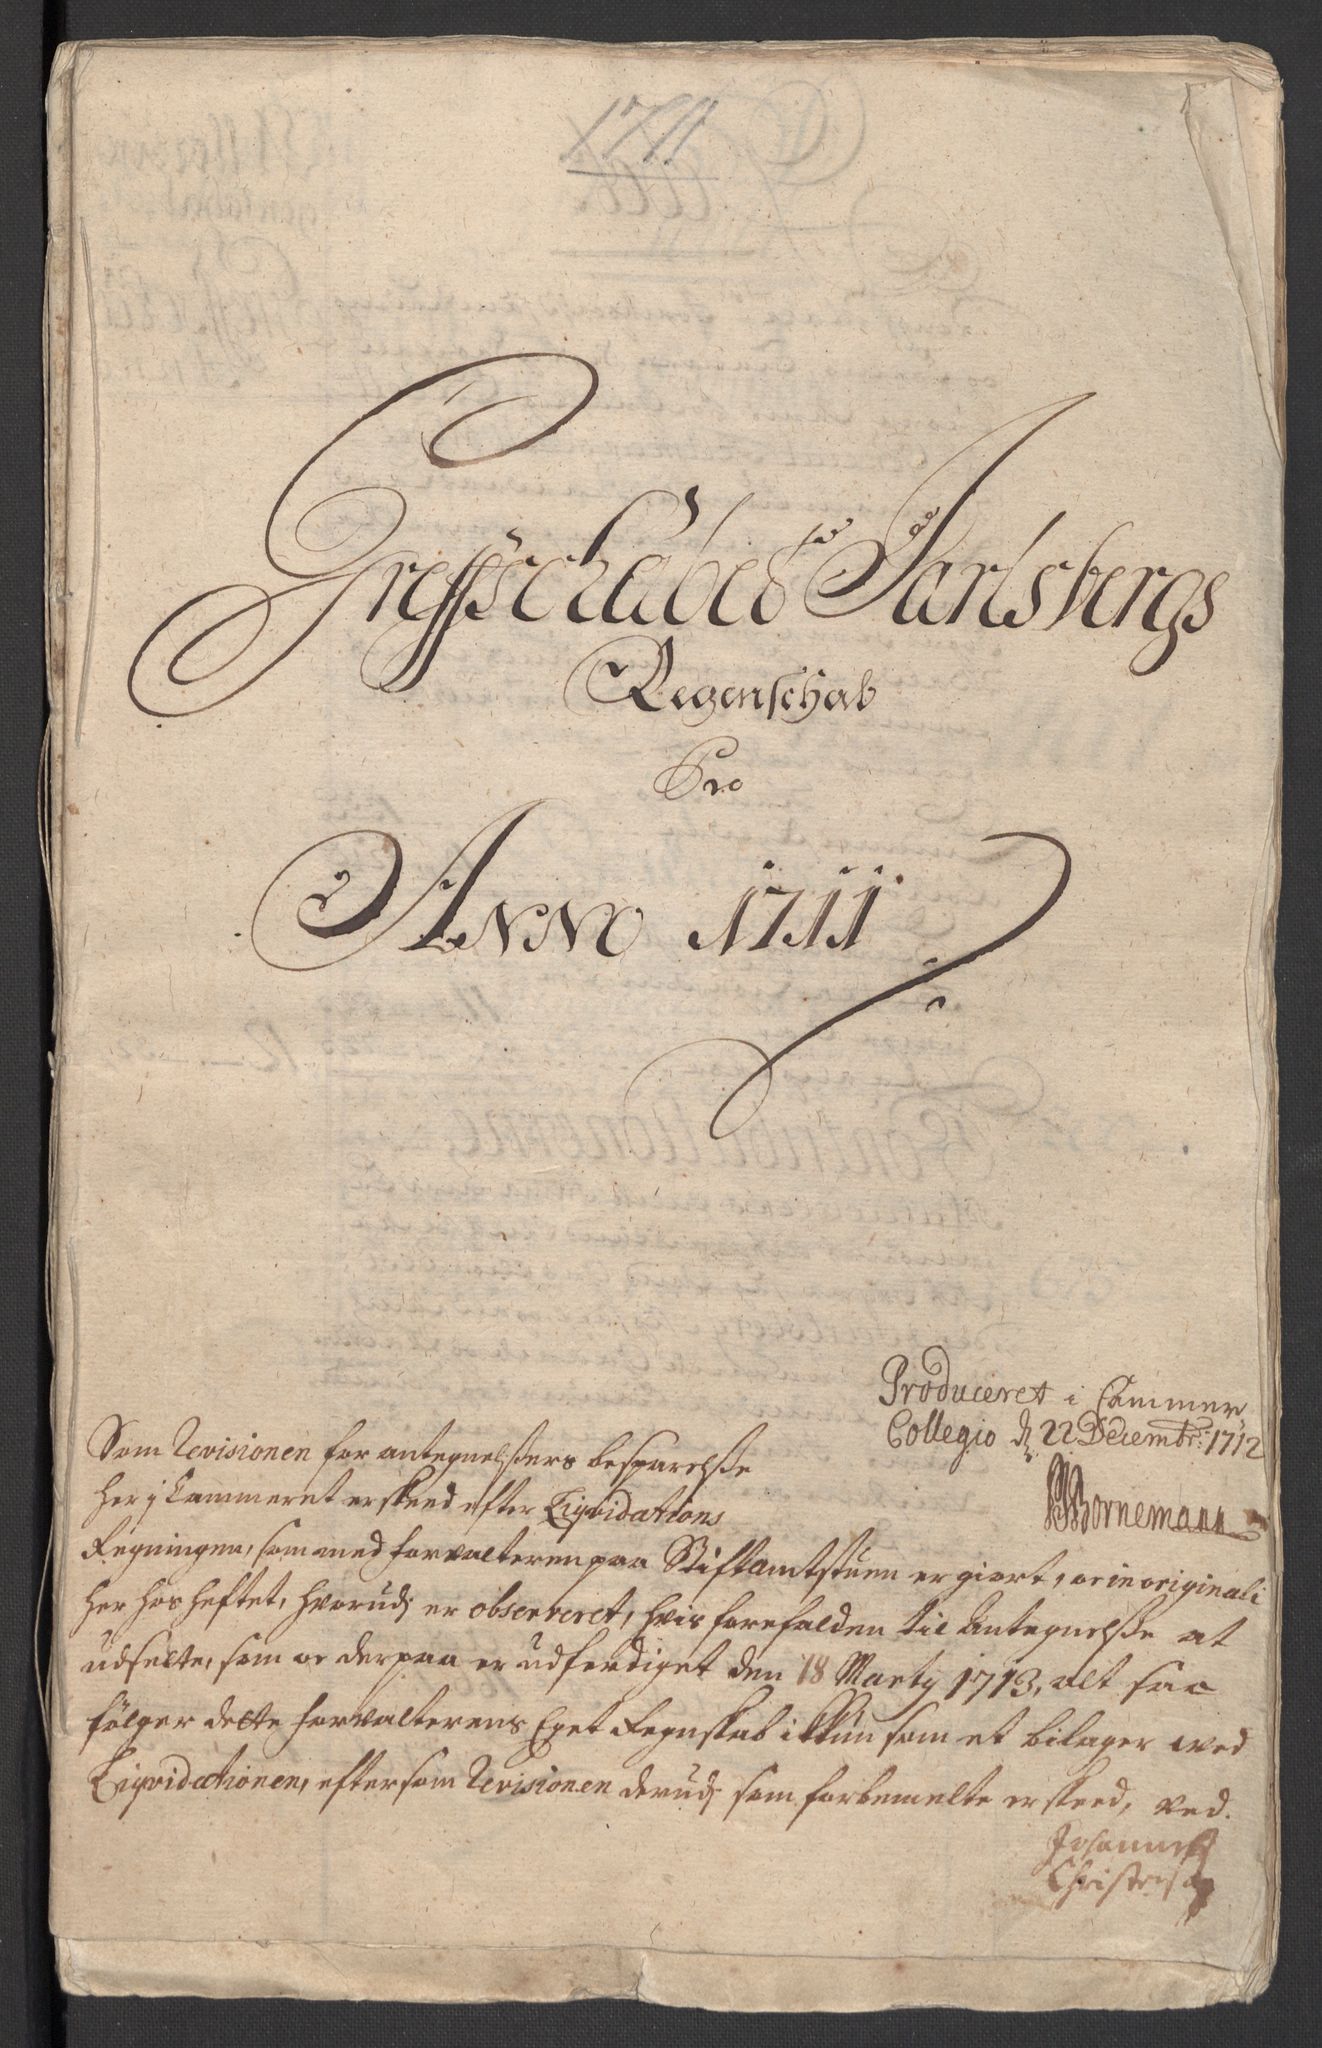 1711
Greffschabed Jarlsbergs
Regenschab
Pro
Anno 1711
Produceret i Cammer
Collegio d 22 Decembr: 1712
Bornemann
Som Revisionen for antegnelßers besparelße
her j Cammeret er skeed efter Liqvidations
Regningen, som med forvalteren paa Stiftamtstuen er giort, oc in originali
her hos heftet, hvorudj er observeret, hvis forefalden til Antegnelße at
udsette, som oc derpaa er udferdiget den 18 Martij 1713, alt saa
følger dette forvalterens Eget Regnskab ikkun som et bilager ved
Liqvidationen, eftersom Revisionen derudj som forbemelte er skeed, ved.
Johannes
Christensen